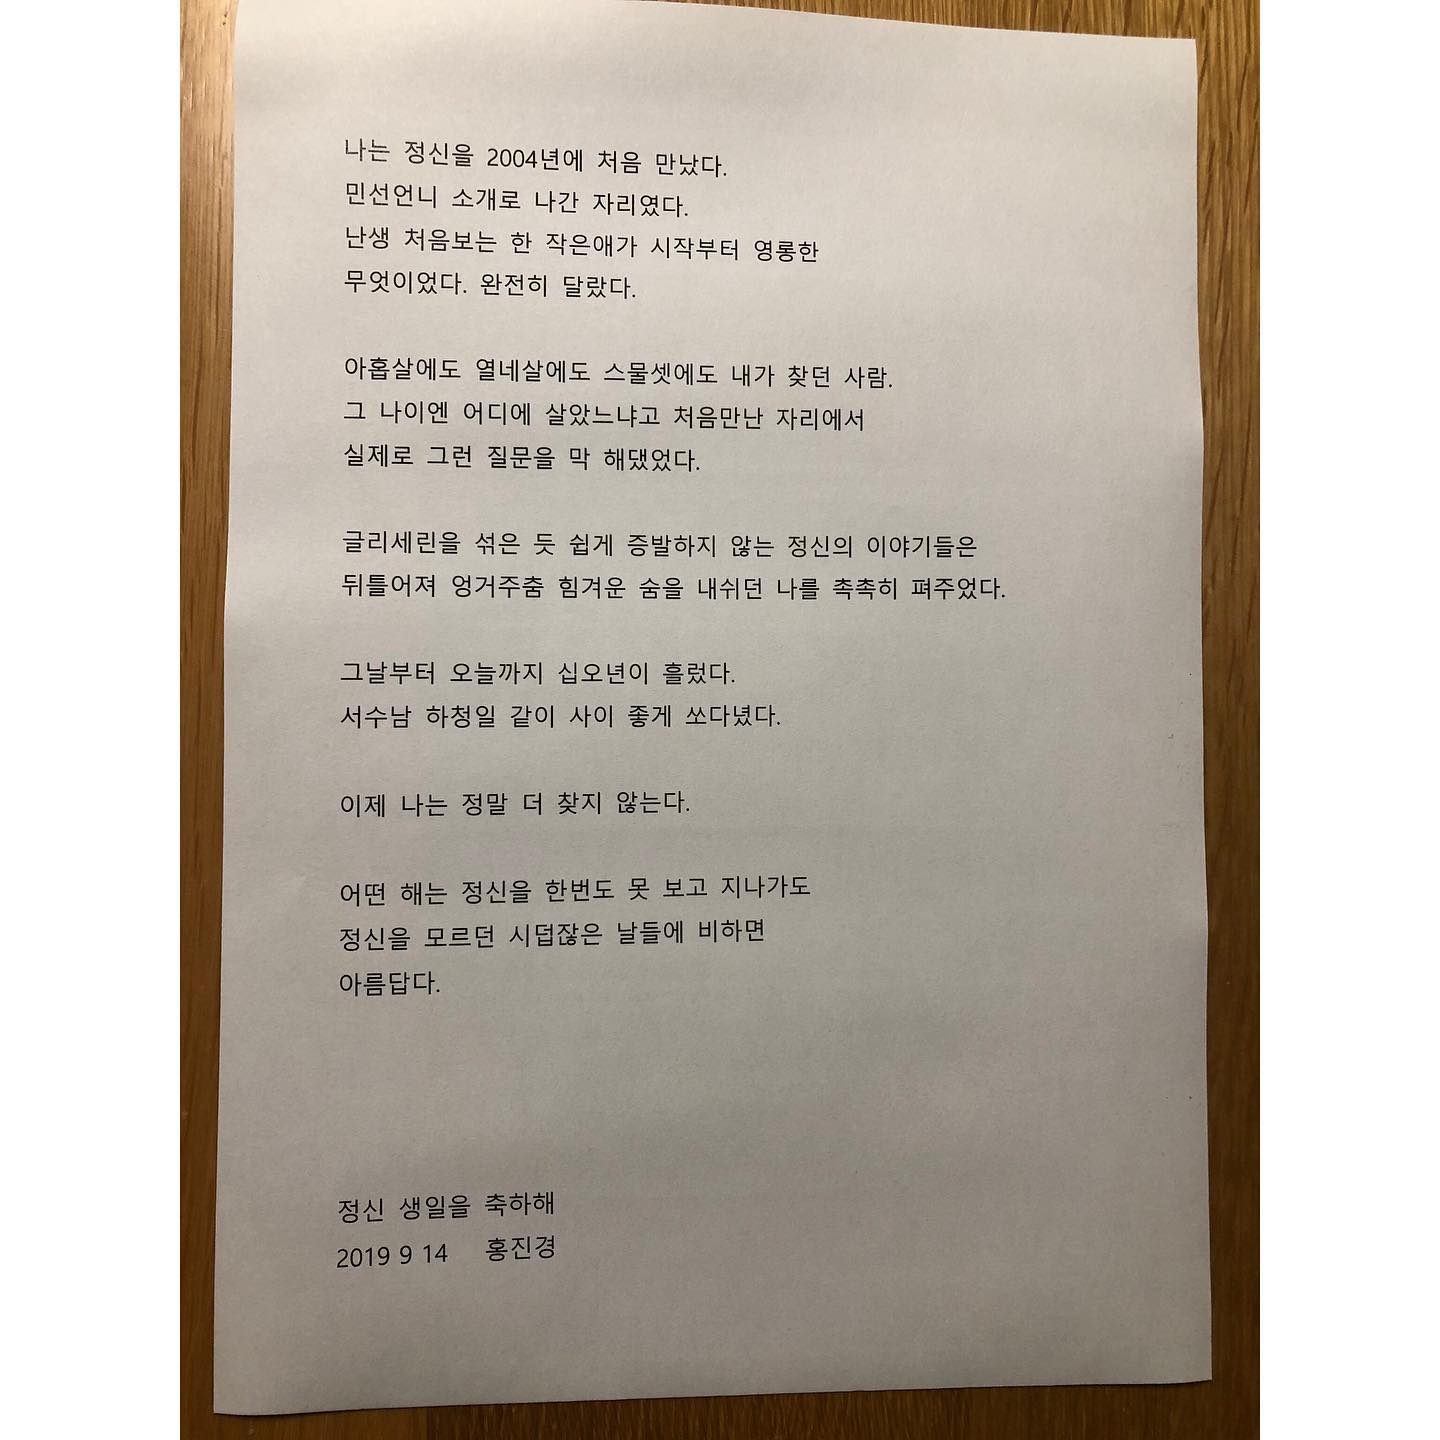 나는 정신을 2004년에 처음 만났다.
민선언니 소개로 나간 자리였다.
난생 처음보는 한 작은애가 시작부터 영롱한
무엇이었다. 완전히 달랐다.
아홉살에도 열네살에도 스물셋에도 내가 찾던 사람.
그 나이엔 어디에 살았느냐고 처음만난 자리에서
실제로 그런 질문을 막 해댔었다.
글리세린을 섞은 듯 쉽게 증발하지 않는 정신의 이야기들은
뒤틀어져 엉거주춤 힘겨운 숨을 내쉬던 나를 촉촉히 펴주었다.
그날부터 오늘까지 십오년이 흘렀다.
서수남 하청일 같이 사이 좋게 쏘다녔다.
이제 나는 정말 더 찾지 않는다.
어떤 해는 정신을 한번도 못 보고 지나가도
정신을 모르던 시덥잖은 날들에 비하면
아름답다.
정신 생일을 축하해
2019 9 14 홍진경